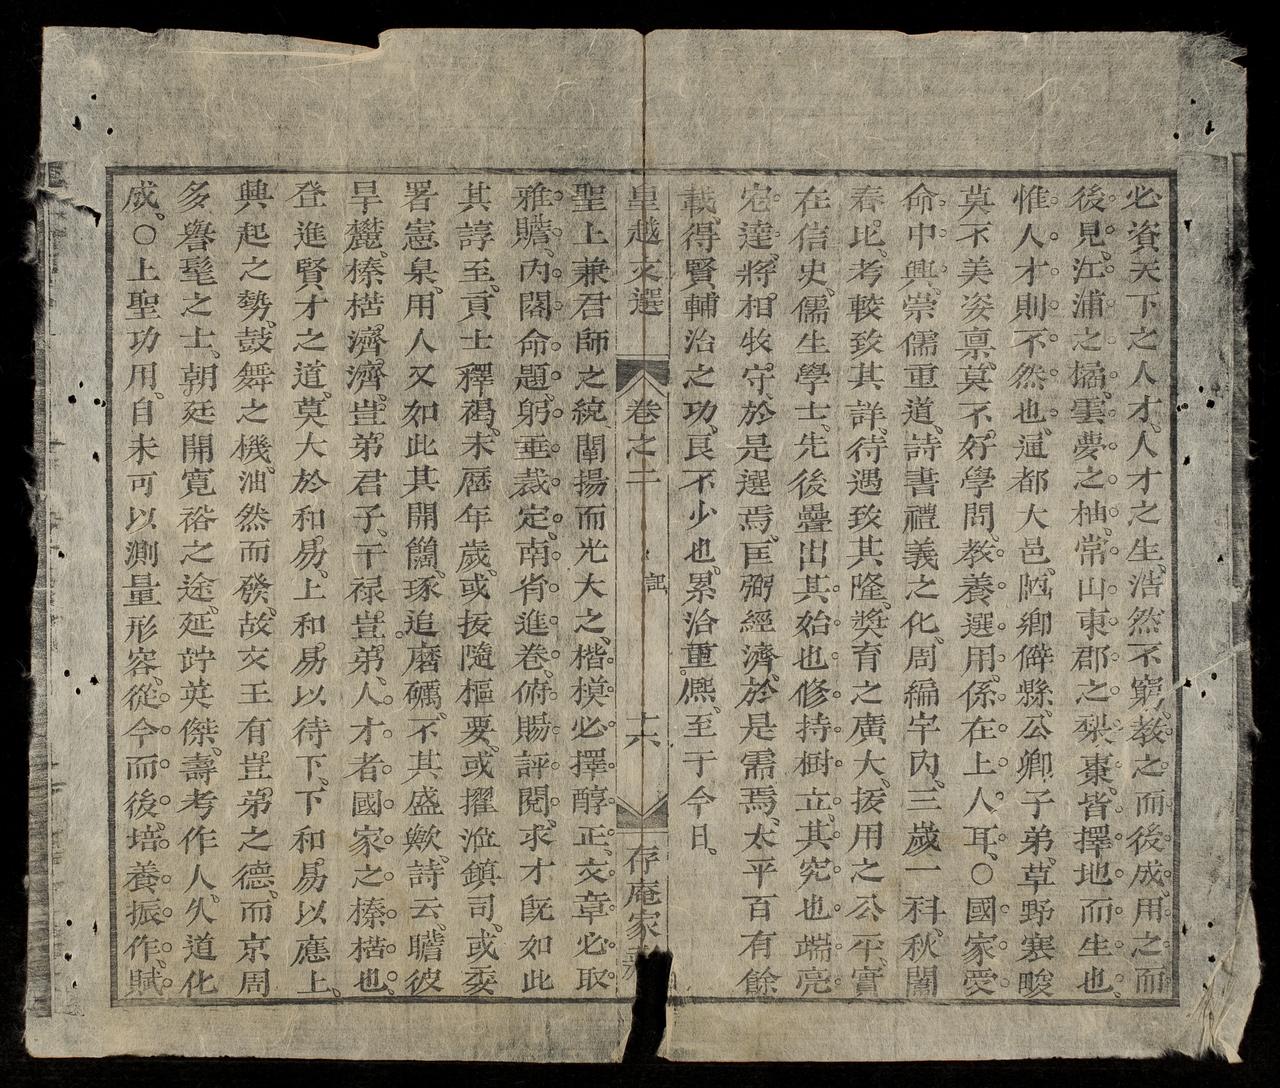 必資天下之人才。人才之生、浩然不窮。教之而後成、用之而
後見。江浦之橘、雲夢之柚、常山東郡之梨棗、皆擇地而生也、
惟人才則不然也。通都大邑、陋鄉僻縣、公卿子弟、草野寒畯
莫不美姿稟、莫不好學問。教養選用、係在上人耳。○國家愛
命中興、崇儒重道、詩書禮義之化、周編宇內、三歲一科、秋闈
春比、考較致其詳、待遇致其隆、獎育之廣大、拔用之公平、實
在信史、儒生學士、先後疊出、其始也修持樹立、其究也端亮
宏達、將相牧守、於是選焉、匡弼經濟、於是需焉、太平百有餘
載、得賢輔治之功、良不少也。累洽重熙、至于今日。
皇越文選 卷之二 記 十六 存庵家
聖上兼君師之統、闡揚而光大之、楷模必擇醇正、文章必取
雅贍、內閣命題、躬垂裁定、南省進卷、俯賜評閱、求才旣如此
其諄至、貢士釋褐、未歷年歲、或拔隨樞要、或擢涖鎮司、或委
署憲臬、用人又如此其開闊、琢追磨礪、不其盛歟。詩云、瞻彼
旱麓、榛楛濟濟、豈弟君子、干祿豈弟、人才者國家之榛楛也、
登進賢才之道、莫大於和易、上和易以待下、下和易以應上、
興起之勢、鼓舞之機、油然而發、故文王有豈弟之德、而京周
多譽髦之士、朝廷開寬裕之途、延竚英傑、壽考作人、久道化
成。○上聖功用、自未可以測量形容、從今而後、培養振作、賦